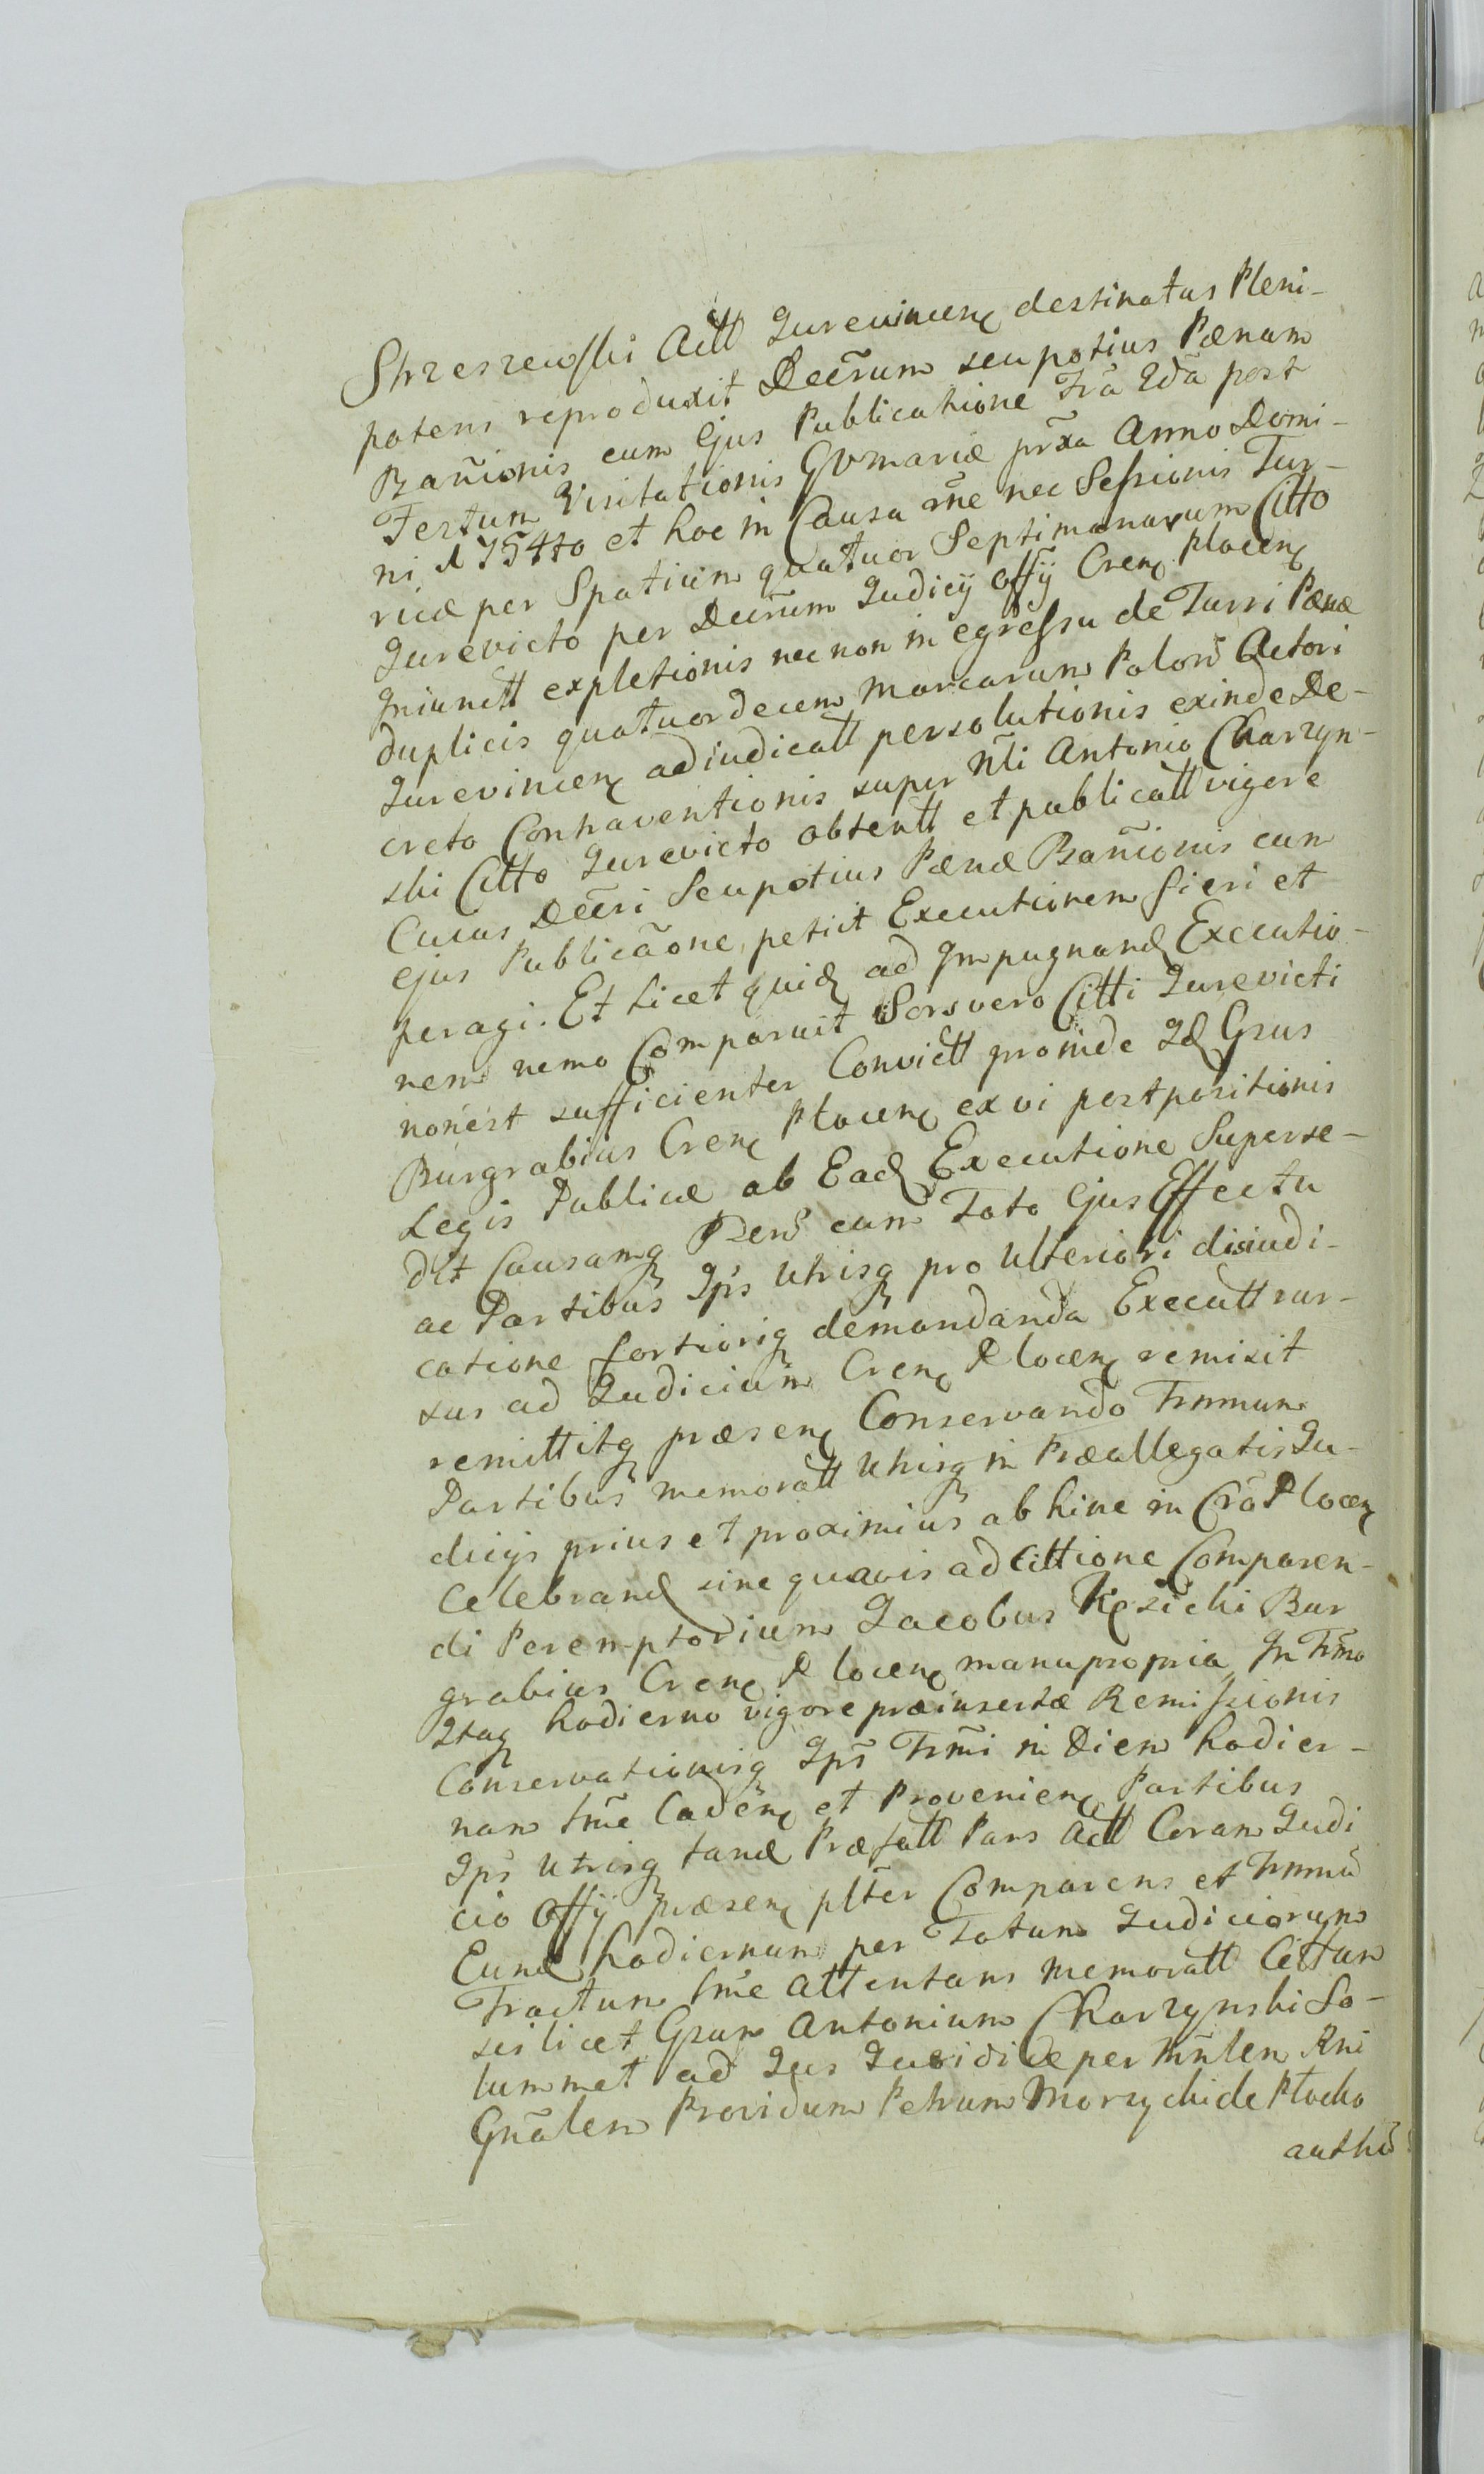 Strzeszewski Actt Jurevincen destinatus Pleni-
potens reproduxit Decrum seu potius Pænam
Bañionis cum Ejus Publicatione Fra 2da post
Festum Visitationis GVmariæ prxa Anno Domi-
ni 1754to et hoc in Causa rñe nec Sessionis Tur-
ricæ per Spatium quatuor Septimanarum Citto
Jurevicto per Decrum Judicij Offij Cren Plocen
Injunctt expletionis nec non in egressu de Turri Pænæ
duplicis quatuordecem Marcarum Polon Actori
Jurevincen adiudicatt persolutionis exinde De-
creto Contraventionis super Nli Antonio Charzyn-
ski Citto Jurevicto obtentt et publicatt vigore
Cuius Decri Seu potius Pænæ Bañionis cum
ejus Publicãone, petiit Executionem fieri et
peragi. Et Licet quid ad Impugnand Executio-
nem nemo Comparuit Sors vero Citti Jurevicti
non est sufficienter Convictt proinde Id Gsus
Burgrabius Cren Plocen ex vi postpositionis
Legis Publicæ ab Ead Executione Superse-
dit Causamq Pens cum Toto Ejus Effectu
ac Partibus Ips Utrisq pro Ulteriori disiudi-
catione fortiorig demandanda Executt rur-
sus ad Judicium Cren Plocen remisit
remittitq præsen Conservando Trmnum
Partibus memoratt Utrisq in Præallegatis Ju-
dicijs prius et proximius ab hinc in Cro Plocen
Celebrand sine quavis adCittione Comparen-
di Peremptorium Jacobus Kęsicki Bur
grabius Cren Plocen manu propria In Trmo
Itaq hodierno vigore præinsertæ Remissionis
Conservationisq Ips Trmi in Diem hodier-
nam Lrñe Caden et Provenien Partibus
Ips Utrisq tand Præfatt Pars Actt Coram Judi
cio Offij præsen plter Comparens et Trmnũ
Eund hodiernum per Totum Judiciorum
Tractum Lrñe Attentans Memoratt Cittum
scilicet Gsum Antonium Charzynski So-
lummet ad Jus Juridice per Mnlem Rni
Gnãlem Providum Petrum Morzycki de Plocko
authũ